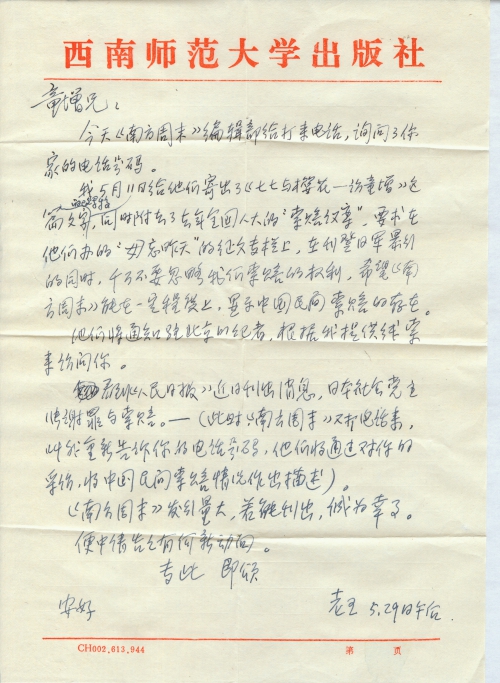 西南师范大学出版社
童增兄：
今天《南方周末》编辑部给打来电话，询问了你
家的电话号码。
我5月11日给他们寄出了《七七与樱花—访童增》这
篇文字，同时附去了去年全国人大的“索赔议案”，要求在
他们办的“毋忘昨天”的征文专栏上，在刊登日军暴行
的同时，千万不要忽略我们索赔的权利，希望《南
方周末》能在一定程度上，显示中国民间索赔的存在。
他们将通知驻北京的记者，根据我提供线索
来访问你。
《人民日报》近日刊出消息，日本社会党主
张谢罪与索赔。—（此时《南方周末》又打电话来，
叫我重新告诉你的电话号码，他们将通过对你的
采访，将中国民间索赔情况作出描述）。
《南方周末》发行量大，若能刊出，诚为幸事。
便中请告之有何新动向。
专此 即颂
安好
老王 5.29日午后.
CH002.613.944
第 页